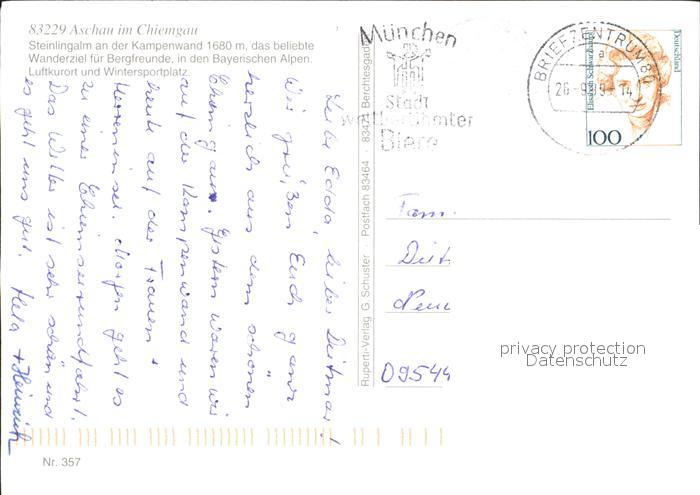 83229 Aschau im Chiemgau
Steinlingalm an der Kampenwand 1680 m, das beliebte
Wanderziel für Bergfreunde, in den Bayerischen Alpen.
Luftkurort und Wintersportplatz.
Liebe Edda, lieber Dietmar!
Wir grüßen Euch ganz
herzlich aus dem schönen
Chiemgau. Gestern waren wir
auf der Kampenwand und
heute auf der Frauen +
Herreninsel. Morgen geht es
zu einer Chiemseerundfahrt.
Das Wetter ist sehr schön und
es geht uns gut. Hela + Heinrich
Nr. 357
Ruperti-Verlag G. Schuster · Postfach 83464 Berchtesgaden
München
Stadt
weltberühmter
Biere
BRIEFZENTRUM 80
a
Deutschland
Elisabeth Schwarzhaupt
100
Fam.
Diet
09544
privacy protection
Datenschutz